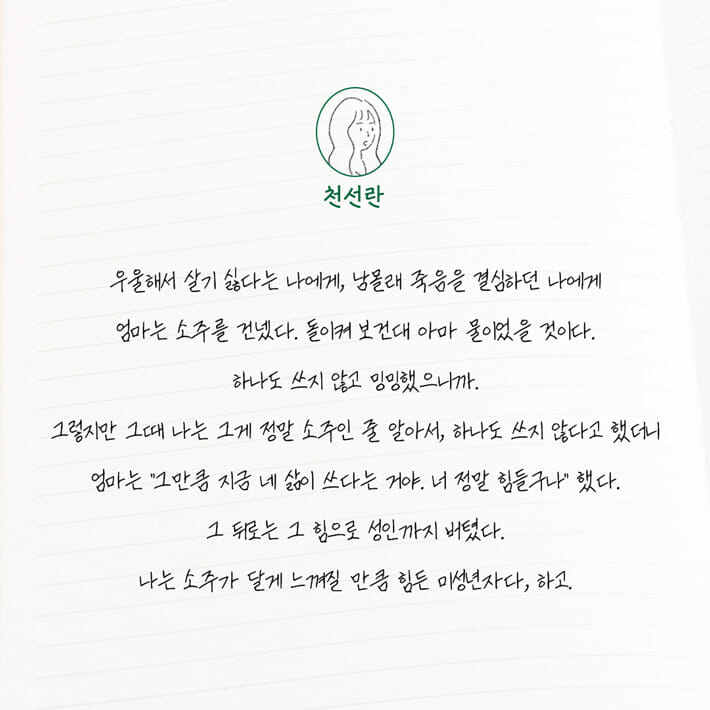 천선란
우울해서 살기 싫다는 나에게, 남몰래 죽음을 결심하던 나에게
엄마는 소주를 건넸다. 돌이켜 보건대 아마 물이었을 것이다.
하나도 쓰지 않고 밍밍했으니까.
그렇지만 그때 나는 그게 정말 소주인 줄 알아서, 하나도 쓰지 않다고 했더니
엄마는 "그만큼 지금 네 삶이 쓰다는 거야. 너 정말 힘들구나" 했다.
그 뒤로는 그 힘으로 성인까지 버텼다.
나는 소주가 달게 느껴질 만큼 힘든 미성년자다, 하고.